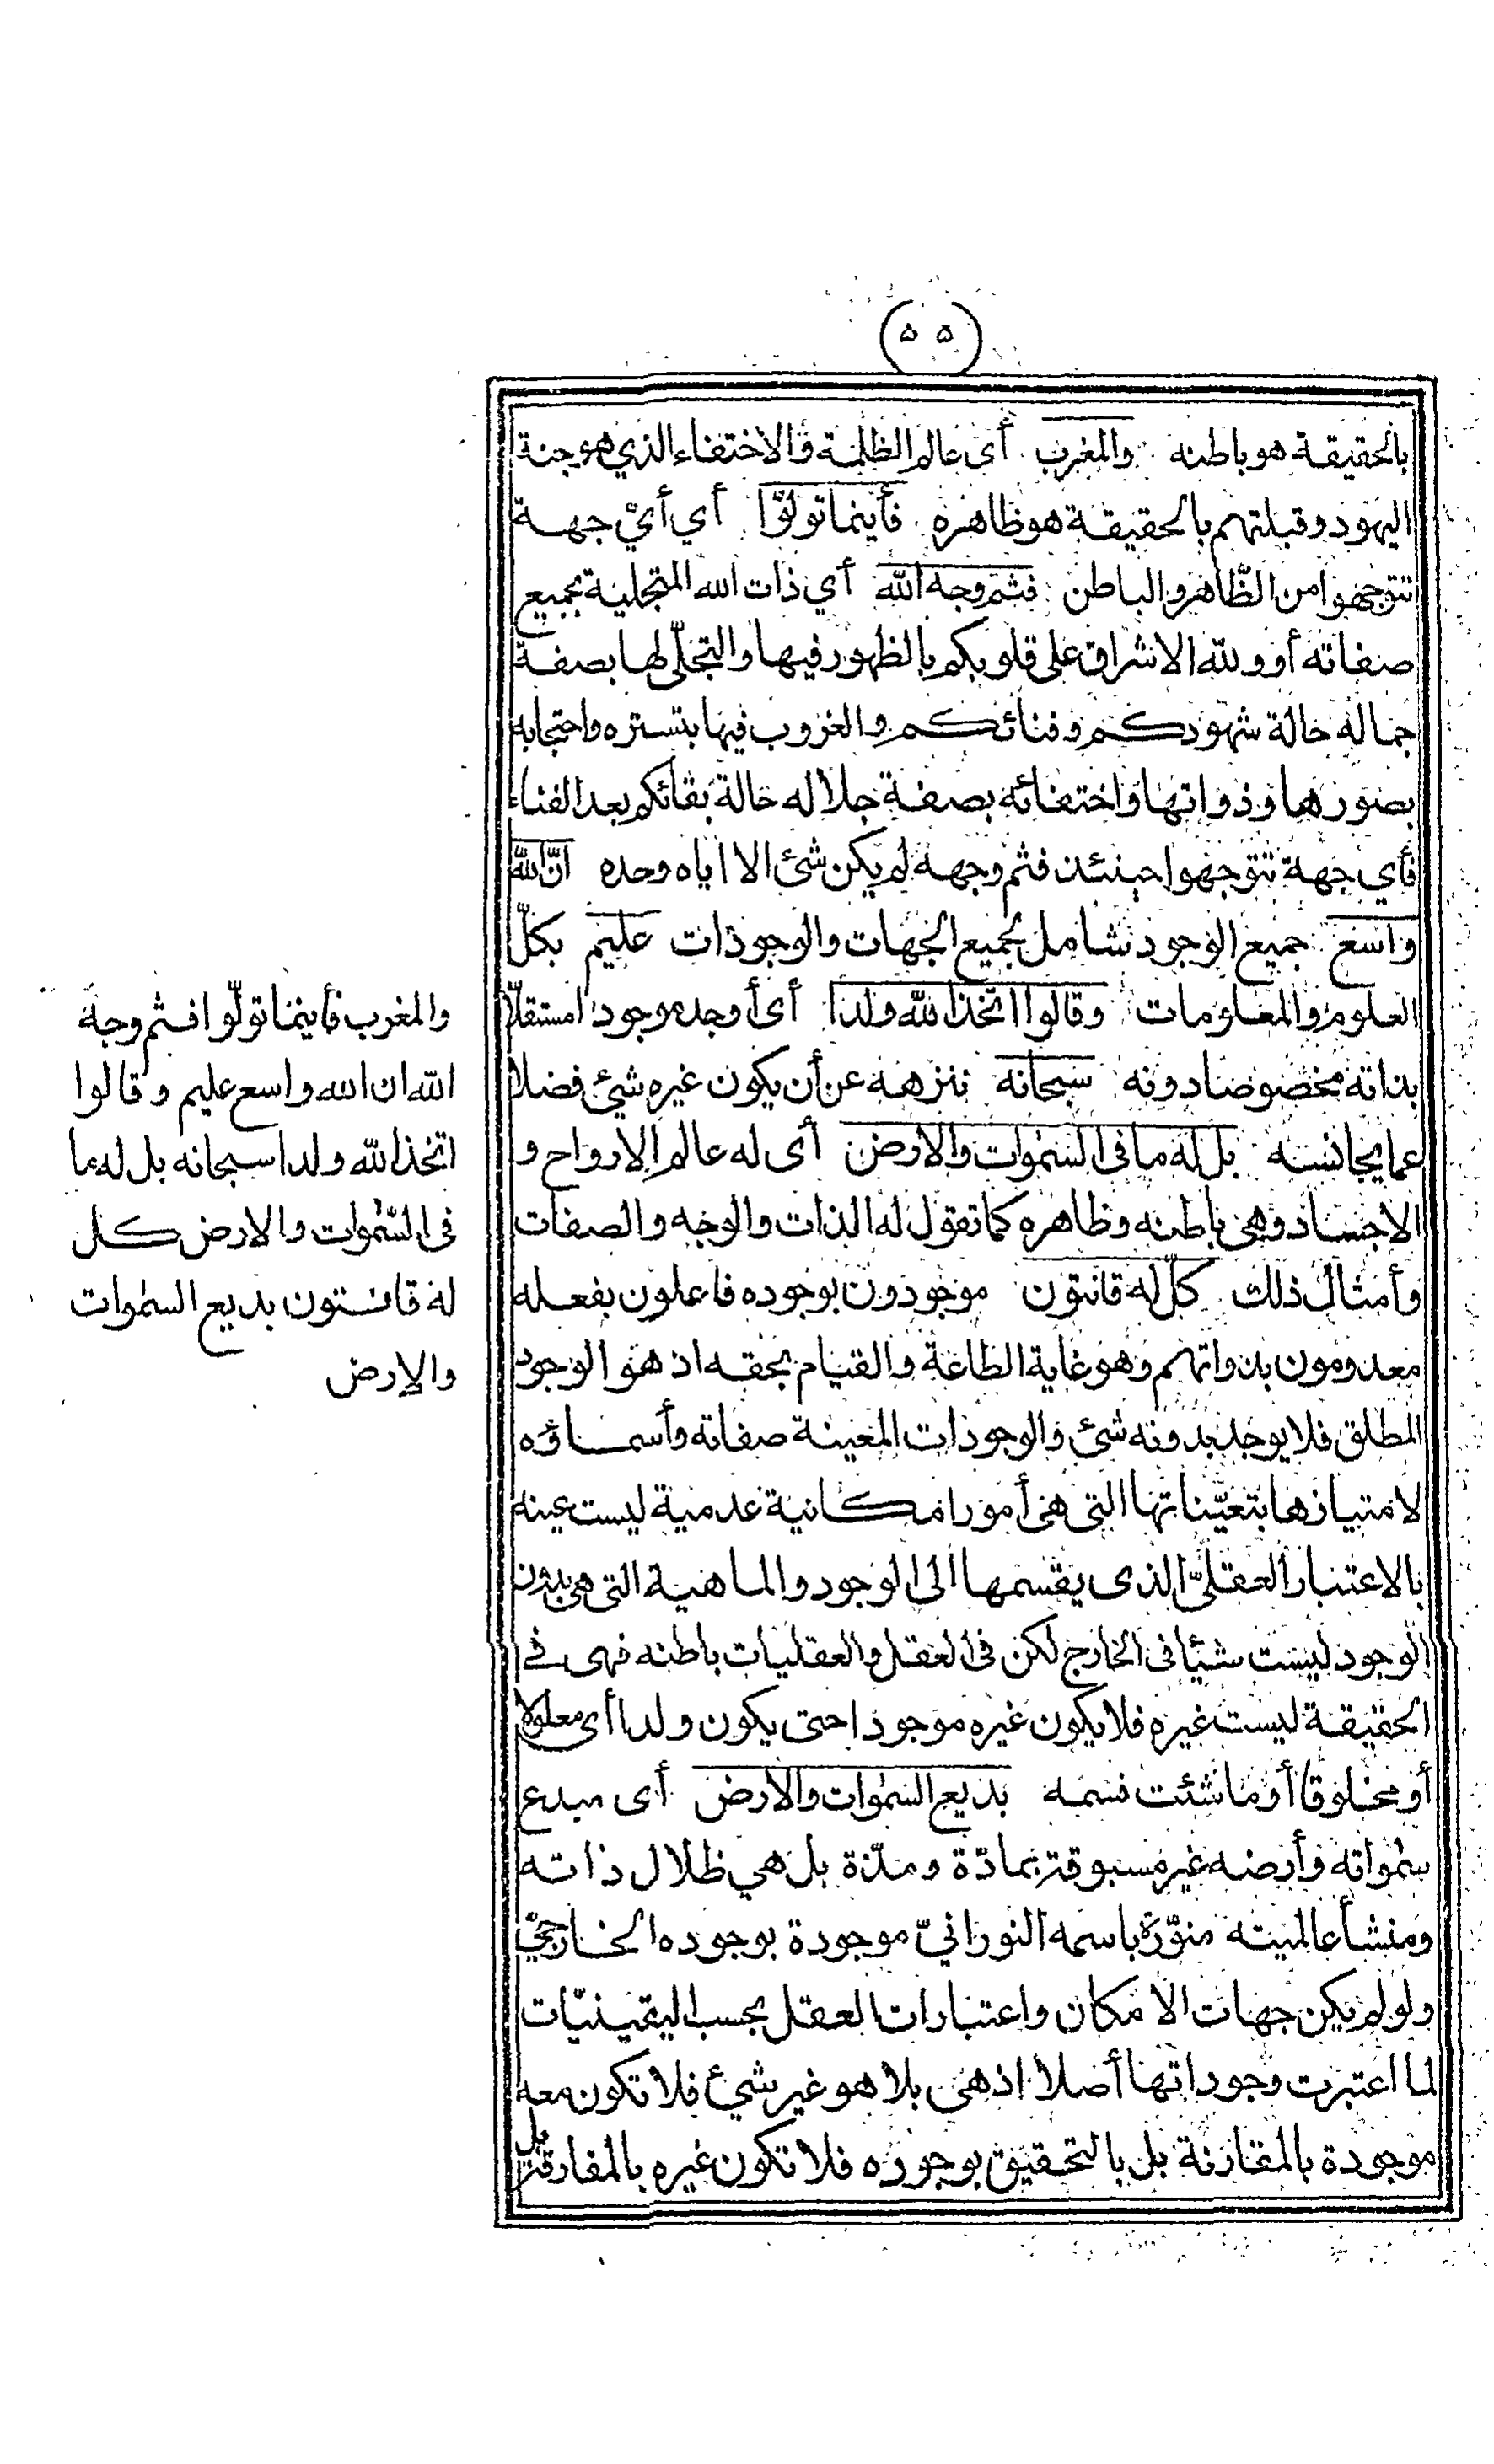 (٥٥)
بالحقيقة هو باطنه والمغرب أى عالم الظلمة والاختفاء الذي هو جنة
اليهود وقبلتهم بالحقيقة هو ظاهره فأينما تولوّا أي أيّ جهة
تتوجهوا من الظّاهر والباطن فثم وجه الله أي ذات الله المتجلية بجميع
صفاته أو ولله الاشراق على قلوبكم بالظهور فيها والتجلّي لها بصفة
جماله حالة شهودكم وفنائكم والغروب فيها بتستره واحتجابه
بصورها وذواتها واختفائه بصفة جلاله حالة بقائكم بعد الفناء
فأي جهة تتوجهوا حينئذ فثم وجهه لم يكن شئ الا اياه وحده انّ الله
واسع جميع الوجود شامل لجميع الجهات والوجودات عليم بكلّ
العلوم والمعلومات وقالوا اتّخذ الله ولدا أى أوجد موجودا مستقلّا
بذاته مخصوصا دونه سبحانه ننزهه عن أن يكون غيره شيئ فضلا
عما يجانسه بل له ما فى السمٰوات والأرض أى له عالم الارواح و
الاجساد وهى باطنه وظاهره كما تقول له الذات والوجه والصفات
وأمثال ذلك كلّ له قانتون موجودون بوجوده فاعلون بفعله
معدومون بذواتهم وهو غاية الطاعة والقيام بحقه اذ هو الوجود
المطلق فلا يوجد بدونه شئ والوجودات المعينة صفاته وأسماؤه
لامتيازها بتعيّناتها التى هى أمور امكانية عدمية ليست عينه
بالاعتبار العقلىّ الذى يقسمها الى الوجود والماهية التى هى بدون
الوجود ليست شيئا فى الخارج لكن فى العقل والعقليات باطنه فهى فى
الحقيقة ليست غيره فلا يكون غيره موجودا حتى يكون ولدا أى معلولا
أو مخلوقا أو ما شئت فسمه بديع السمٰوات والأرض أى مبدع
سمٰواته وأرضه غير مسبوقة بمادّة ومدّة بل هي ظلال ذاته
ومنشأ عالميته منوّرة باسمه النورانيّ موجودة بوجوده الخارجيّ
ولو لم يكن جهات الامكان واعتبارات العقل بحسب اليقينيّات
لما اعتبرت وجوداتها أصلا اذ هى بلا هو غير شيئ فلا تكون معه
موجودة بالمقارنة بل بالتحقيق بوجوده فلا تكون غيره بالمفارقة بل
والمغرب فأينما تولّوا فثم وجه
الله ان الله واسع عليم وقالوا
اتخذ الله ولدا سبحانه بل له ما
فى السّمٰوات والارض كل
له قانتون بديع السمٰوات
والارض